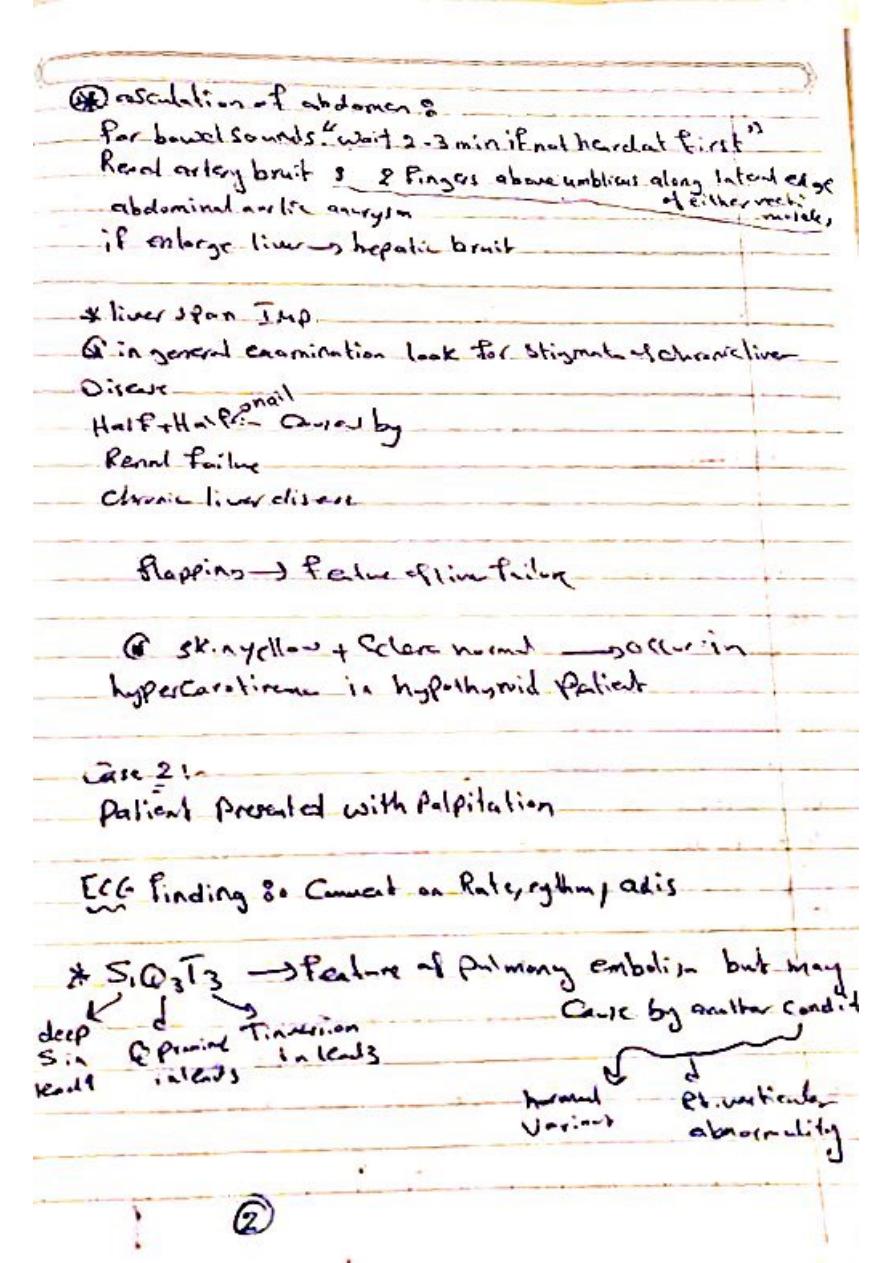 * ausculation of abdomen :
for bowel sounds "wait 2-3 min if not heard at first"
Renal artery bruit : 2 fingers above umblicus along lateral edge
of either recti
muscles
abdominal aortic anurysm
if enlarge liver → hepatic bruit
* liver span Imp.
in general examination look for stigmata of chronic liver
Disease
Half + Half nail :- Caused by
Renal failure
Chronic liver disease
flapping → feature of liver failure
skin yellow + Sclera normal → occur in
hypercarotinema in hypothyroid patient
Case 2 :-
Patient presented with palpitation
ECG finding :. Comment on Rate, rythm, axis
* S1Q3T3 → feature of pulmonary embolism but may
Cause by another condit
deep
S in
lead 1
Q promine
in lead 3
T inversion
in lead 3
normal
variant
Rt. ventricular
abnormality
2